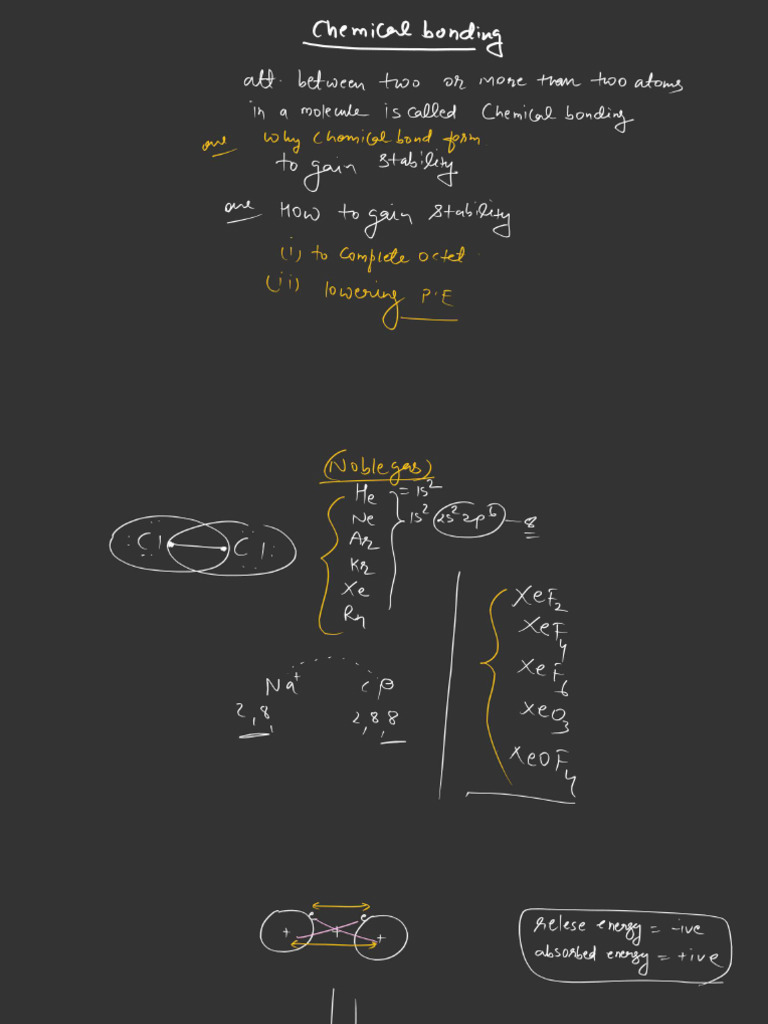 Chemical bonding
att. between two or more than two atoms
in a molecule is called Chemical bonding
Que Why Chemical bond form
to gain stability
Que How to gain stability
(i) to complete octet
(ii) lowering P.E
(Noble gas)
He = 1s²
Ne 1s² 2s² 2p⁶ — 8
Ar
Kr
Xe
Rn
Cl Cl
XeF₂
XeF₄
XeF₆
XeO₃
XeOF₄
Na⁺ Cl
2,8, 2,8,8
e e
+ + +
relese energy = -ive
absorbed energy = +ive